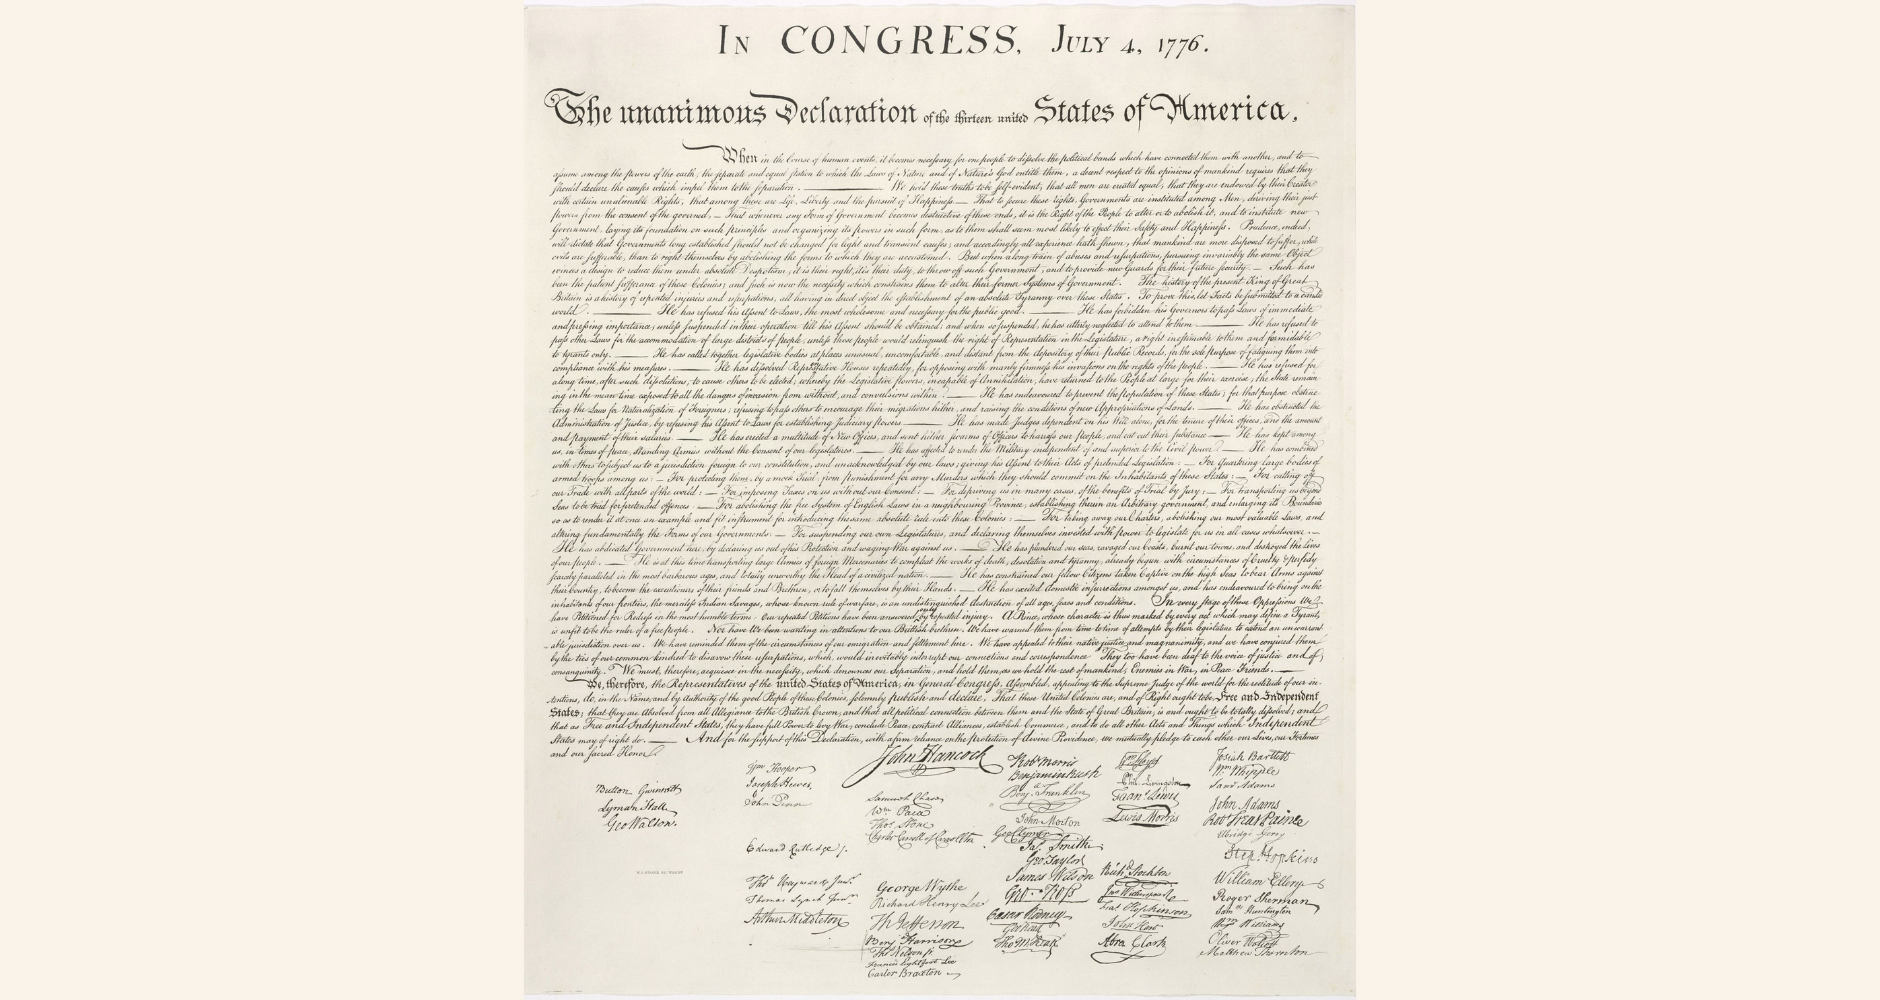 In CONGRESS, July 4, 1776.
The unanimous Declaration of the thirteen united States of America,
When in the Course of human events, it becomes necessary for one people to dissolve the political bands which have connected them with another, and to
assume among the powers of the earth, the separate and equal station to which the Laws of Nature and of Nature's God entitle them, a decent respect to the opinions of mankind requires that they
should declare the causes which impel them to the separation. — We hold these truths to be self-evident, that all men are created equal, that they are endowed by their Creator
with certain unalienable Rights, that among these are Life, Liberty and the pursuit of Happiness.— That to secure these rights, Governments are instituted among Men, deriving their just
powers from the consent of the governed, — That whenever any Form of Government becomes destructive of these ends, it is the Right of the People to alter or to abolish it, and to institute new
Government, laying its foundation on such principles and organizing its powers in such form, as to them shall seem most likely to effect their Safety and Happiness. Prudence, indeed,
will dictate that Governments long established should not be changed for light and transient causes; and accordingly all experience hath shewn, that mankind are more disposed to suffer, while
evils are sufferable, than to right themselves by abolishing the forms to which they are accustomed. But when a long train of abuses and usurpations, pursuing invariably the same Object
evinces a design to reduce them under absolute Despotism, it is their right, it is their duty, to throw off such Government, and to provide new Guards for their future security. — Such has
been the patient sufferance of these Colonies; and such is now the necessity which constrains them to alter their former Systems of Government. The history of the present King of Great
Britain is a history of repeated injuries and usurpations, all having in direct object the establishment of an absolute Tyranny over these States. To prove this, let Facts be submitted to a candid
world. — He has refused his Assent to Laws, the most wholesome and necessary for the public good. — He has forbidden his Governors to pass Laws of immediate
and pressing importance, unless suspended in their operation till his Assent should be obtained; and when so suspended, he has utterly neglected to attend to them. — He has refused to
pass other Laws for the accommodation of large districts of people, unless those people would relinquish the right of Representation in the Legislature, a right inestimable to them and formidable
to tyrants only. — He has called together legislative bodies at places unusual, uncomfortable, and distant from the depository of their Public Records, for the sole purpose of fatiguing them into
compliance with his measures. — He has dissolved Representative Houses repeatedly, for opposing with manly firmness his invasions on the rights of the people. — He has refused for
a long time, after such dissolutions, to cause others to be elected; whereby the Legislative powers, incapable of Annihilation, have returned to the People at large for their exercise; the State remain
ing in the mean time exposed to all the dangers of invasion from without, and convulsions within. — He has endeavoured to prevent the population of these States; for that purpose obstruc
ting the Laws for Naturalization of Foreigners; refusing to pass others to encourage their migrations hither, and raising the conditions of new Appropriations of Lands. — He has obstructed the
Administration of Justice, by refusing his Assent to Laws for establishing Judiciary powers. — He has made Judges dependent on his Will alone, for the tenure of their offices, and the amount
and payment of their salaries. — He has erected a multitude of New Offices, and sent hither swarms of Officers to harrass our people, and eat out their substance. — He has kept among
us, in times of peace, Standing Armies without the Consent of our legislatures. — He has affected to render the Military independent of and superior to the Civil power. — He has combined
with others to subject us to a jurisdiction foreign to our constitution, and unacknowledged by our laws; giving his Assent to their Acts of pretended Legislation: — For Quartering large bodies of
armed troops among us: — For protecting them, by a mock Trial, from punishment for any Murders which they should commit on the Inhabitants of these States: — For cutting off
our Trade with all parts of the world: — For imposing Taxes on us without our Consent: — For depriving us in many cases, of the benefits of Trial by Jury: — For transporting us beyond
Seas to be tried for pretended offences — For abolishing the free System of English Laws in a neighbouring Province, establishing therein an Arbitrary government, and enlarging its Boundaries
so as to render it at once an example and fit instrument for introducing the same absolute rule into these Colonies: — For taking away our Charters, abolishing our most valuable Laws, and
altering fundamentally the Forms of our Governments: — For suspending our own Legislatures, and declaring themselves invested with power to legislate for us in all cases whatsoever. —
He has abdicated Government here, by declaring us out of his Protection and waging War against us. — He has plundered our seas, ravaged our Coasts, burnt our towns, and destroyed the lives
of our people. — He is at this time transporting large Armies of foreign Mercenaries to compleat the works of death, desolation and tyranny, already begun with circumstances of Cruelty & perfidy
scarcely paralleled in the most barbarous ages, and totally unworthy the Head of a civilized nation. — He has constrained our fellow Citizens taken Captive on the high Seas to bear Arms against
their Country, to become the executioners of their friends and Brethren, or to fall themselves by their Hands. — He has excited domestic insurrections amongst us, and has endeavoured to bring on the
inhabitants of our frontiers, the merciless Indian Savages, whose known rule of warfare, is an undistinguished destruction of all ages, sexes and conditions. In every stage of these Oppressions We
have Petitioned for Redress in the most humble terms: Our repeated Petitions have been answered only by repeated injury. A Prince, whose character is thus marked by every act which may define a Tyrant,
is unfit to be the ruler of a free people. Nor have We been wanting in attentions to our Brittish brethren. We have warned them from time to time of attempts by their legislature to extend an unwarrant
able jurisdiction over us. We have reminded them of the circumstances of our emigration and settlement here. We have appealed to their native justice and magnanimity, and we have conjured them
by the ties of our common kindred to disavow these usurpations, which, would inevitably interrupt our connections and correspondence They too have been deaf to the voice of justice and of
consanguinity. We must, therefore, acquiesce in the necessity, which denounces our Separation, and hold them, as we hold the rest of mankind, Enemies in War, in Peace Friends. —
We, therefore, the Representatives of the united States of America, in General Congress, Assembled, appealing to the Supreme Judge of the world for the rectitude of our in-
tentions, do, in the Name, and by Authority of the good People of these Colonies, solemnly publish and declare, That these United Colonies are, and of Right ought to be Free and Independent
States; that they are Absolved from all Allegiance to the British Crown, and that all political connection between them and the State of Great Britain, is and ought to be totally dissolved; and
that as Free and Independent States, they have full Power to levy War, conclude Peace, contract Alliances, establish Commerce, and to do all other Acts and Things which Independent
States may of right do. — And for the support of this Declaration, with a firm reliance on the protection of divine Providence, we mutually pledge to each other our Lives, our Fortunes
and our sacred Honor.
Button Gwinnett
Lyman Hall
Geo Walton.
Wm Hooper
Joseph Hewes,
John Penn
Edward Rutledge /.
Thos Heyward Junr.
Thomas Lynch Junr.
Arthur Middleton
John Hancock
Samuel Chase
Wm Paca
Thos Stone
Charles Carroll of Carrollton
George Wythe
Richard Henry Lee
Th Jefferson
Benj Harrison
Thos Nelson jr.
Francis Lightfoot Lee
Carter Braxton
Robt Morris
Benjamin Rush
Benja Franklin
John Morton
Geo Clymer
Jas. Smith
Geo Taylor
James Wilson
Geo. Ross
Caesar Rodney
Geo Read
Tho M:Kean
Wm Floyd
Phil. Livingston
Frans. Lewis
Lewis Morris
Richd. Stockton
Jno Witherspoon
Fras. Hopkinson
John Hart
Abra Clark
Josiah Bartlett
Wm. Whipple
Saml Adams
John Adams
Robt Treat Paine
Elbridge Gerry
Step. Hopkins
William Ellery
Roger Sherman
Saml Huntington
Wm Williams
Oliver Wolcott
Matthew Thornton